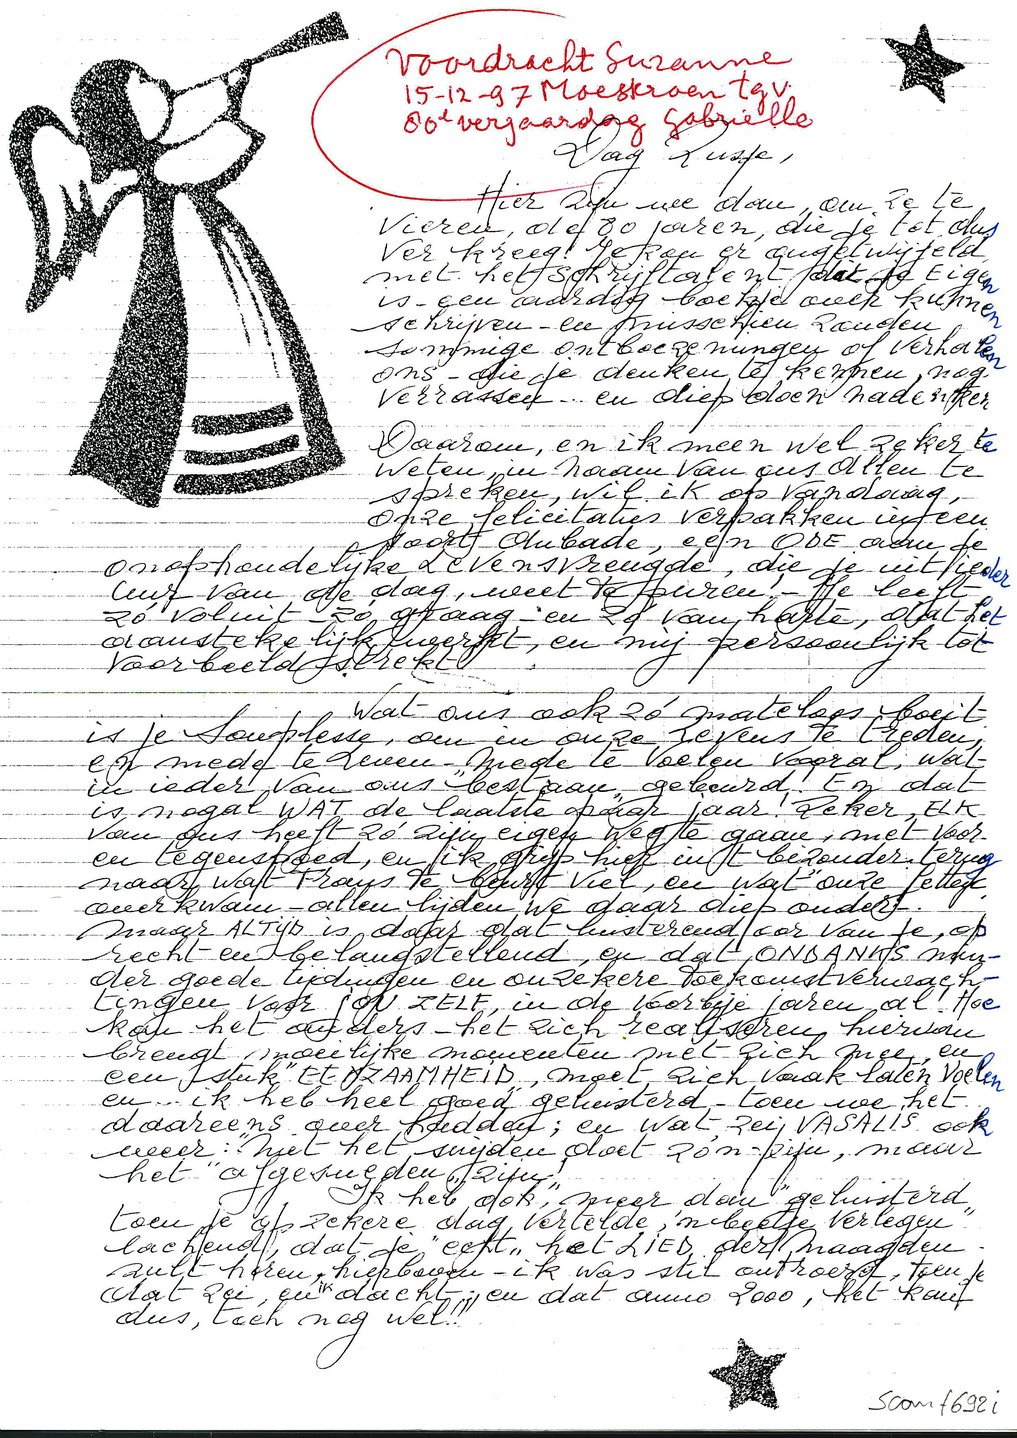 Voordracht Suzanne
15-12-97 Moeskroen tgv.
80e verjaardag Gabrielle
Dag Zusje,
Hier zijn we dan, om ze te
vieren, de 80 jaren, die je tot dus
ver kreeg! Je kan er ongetwijfeld
met het schrijftalent dat je eigen
is - een aardig boekje over kunnen
schrijven - en misschien zouden
sommige ontboezemingen of verhalen
ons - die je denken te kennen, nog
verrassen... en diep doen nadenken
Daarom, en ik meen wel zeker te
weten, in naam van ons Allen te
spreken, wil ik op vandaag,
onze felicitaties verpakken in een
soort Aubade, een ODE aan je
onophoudelijke Levensvreugde, die je uit ieder
uur van de dag, weet te puren. - Je leeft
zó voluit - zó graag - en zó van harte, dat het
aanstekelijk werkt, en mij persoonlijk tot
voorbeeld strekt.
Wat ons ook zó mateloos boeit
is je Souplesse, om in onze Levens te treden,
en mede te Leven - Mede te voelen vooral, wat
in ieder van ons "bestaan" gebeurd! En dat
is nogal WAT de laatste paar jaar! Zeker, ELK
van ons heeft zó zijn eigen weg te gaan, met voor-
en tegenspoed, en ik grijp hier in 't bizonder terug
naar wat Frans te beurt viel, en wat onze Jettie
overkwam - allen lijden we daar diep onder.
Maar ALTIJD is daar dat luisterend oor van je, op
recht en belangstellend, en dat ONDANKS min-
der goede tijdingen en onzekere toekomstverwach-
tingen voor JOU ZELF, in de voorbije jaren al! Hoe
kan het anders - het zich realiseren hiervan
brengt moeilijke momenten met zich mee, en
een "stuk" EENZAAMHEID, moet zich vaak laten voelen
en... ik heb heel goed geluisterd - toen we het
daareens over hadden; en wat zei VASALIS ook
weer: "Niet het snijden doet zo'n pijn, maar
het "afgesneden" zijn!
Ik heb ook, meer dan "geluisterd
toen je op zekere dag, vertelde, 'n beetje verlegen"
lachend, dat je "echt" het LIED der Maagden
zult horen, hierboven - ik was stil ontroerd, toen je
dat zei, en ik dacht; en dat anno 2000, het kan
dus, toch nog wel!!
Scan f692i